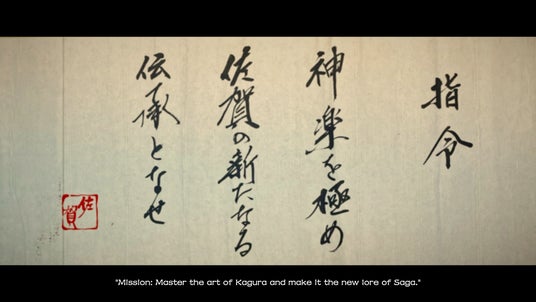 指令
神楽を極め
佐賀の新たなる
伝承となせ
佐賀
"Mission: Master the art of Kagura and make it the new lore of Saga."